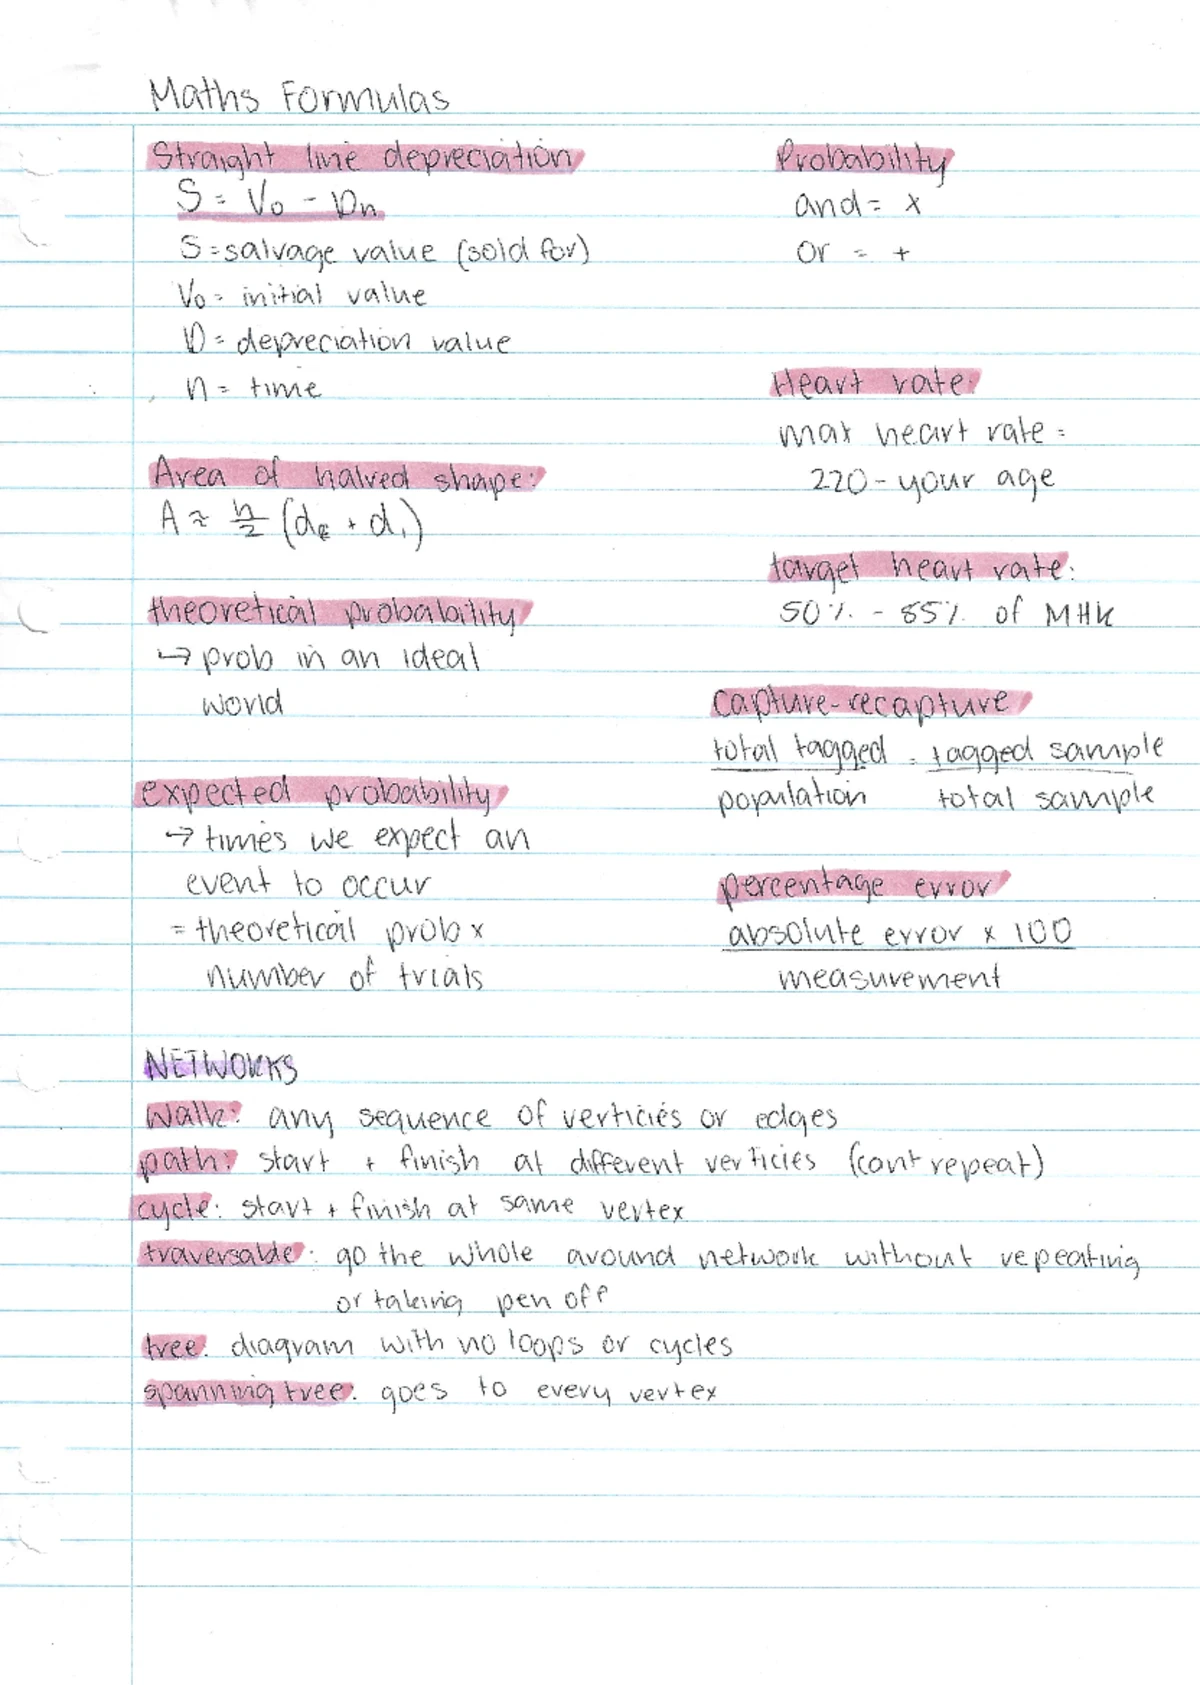 Maths Formulas
Straight line depreciation
S = V₀ - Dn
S = salvage value (sold for)
V₀ = initial value
D = depreciation value
n = time
Area of halved shape:
A ≈ h/2 (df + d1)
theoretical probability
→ prob in an ideal
world
expected probability
→ times we expect an
event to occur
= theoretical prob x
number of trials
Probability
and = x
or = +
Heart rate:
max heart rate =
220 - your age
target heart rate:
50% - 85% of MHR
capture-recapture
total tagged = tagged sample
population total sample
percentage error
absolute error x 100
measurement
NETWORKS
Walk: any sequence of verticies or edges
path: start + finish at different verticies (cant repeat)
cycle: start + finish at same vertex
traversable: go the whole around network without repeating
or taking pen off
tree: diagram with no loops or cycles
spanning tree: goes to every vertex